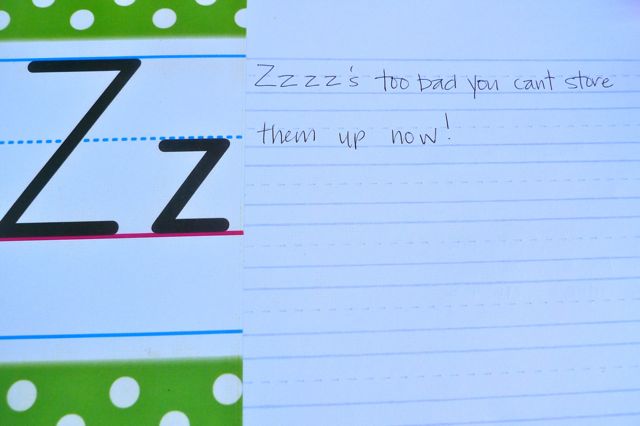 Zz
Zzzz's too bad you cant store
them up now!